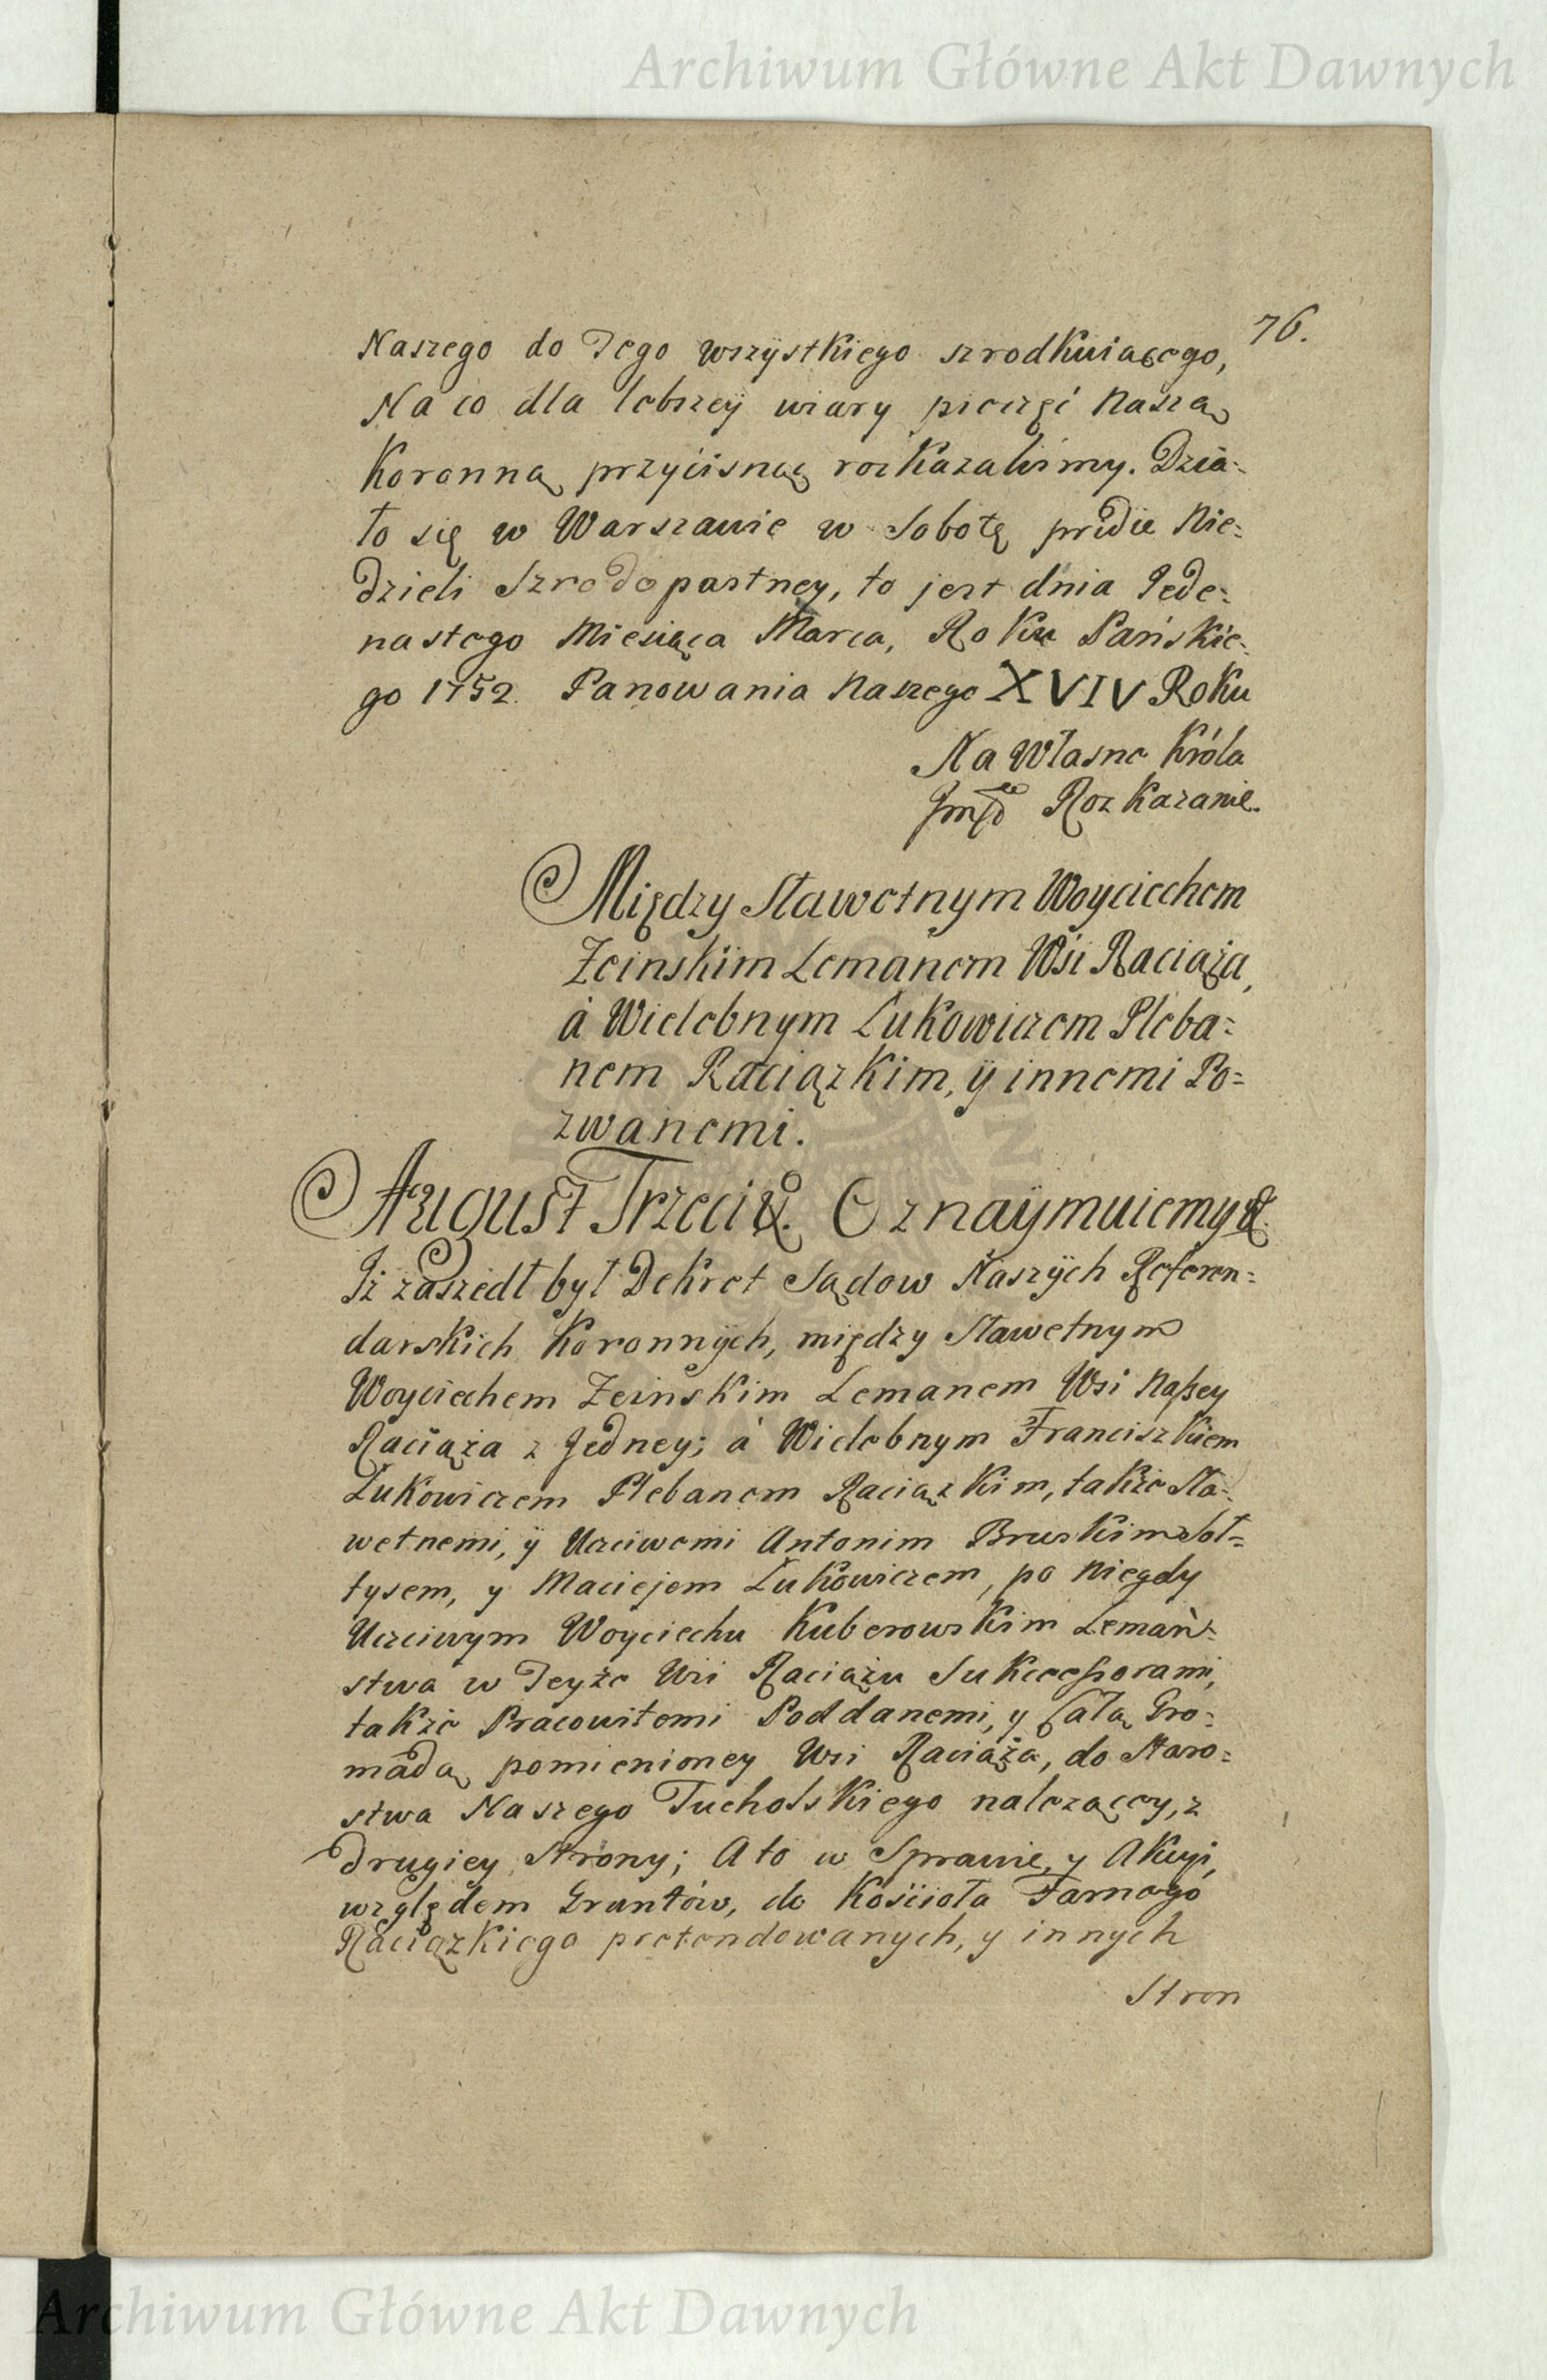 Archiwum Główne Akt Dawnych
76.
Naszego do Tego wszÿstkiego szrodkuiącego,
Na co dla lebszeÿ wiary pieczęć Naszą
Koronną przyćisnąć rozkazaliśmy. Dzia=
ło się w Warszawie w Sobotę pridie Nie=
dzieli Szrodopostney, to jest dnia Jede=
nastego Miesiąca Marca, Roku Pańskie=
go 1752. Panowania Naszego XVIV Roku
Na Własne Króla
Jmści Rozkazanie.
Między Sławetnym Woyciechem
Zeinskim Lemanem Wśi Raciąża,
á Wielebnym Łukowiczem Pleba=
nem Raciązkim, ÿ innemi Po=
zwanemi.
August Trzeci &. Oznaÿmuiemy &.
Iż zaszedł był Dekret Sądow Naszÿch Referen=
darskich Koronnÿch, między Sławetnym
Woyciechem Zeinskim Lemanem Wsi Naßey
Raciąża z Jedney; á Wielebnym Franciszkiem
Łukowiczem Plebanem Raciązkim, także Sła=
wetnemi, ÿ Uczciwemi Antonim Bruskim Soł=
tysem, y Maciejem Łukowiczem, po Niegdy
Uczciwym Woyciechu Kuberowskim Lemań=
stwa w Teyże Wsi Raciążu Sukceßorami,
także Pracowitemi Poddanemi, y całą Gro=
madą pomienioney Wsi Raciąża, do Staro=
stwa Naszego Tucholskiego należącey, z
drugiey Strony; A to w Sprawie, y Akcyi,
względem Gruntów, do Kościoła Farnego
Raciązkiego pretendowanych, y innych
Stron
Archiwum Główne Akt Dawnych